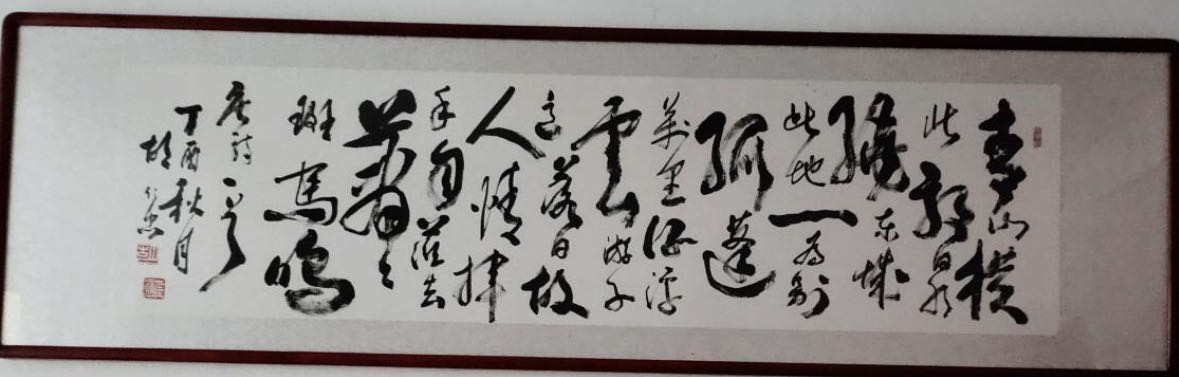 青山横
北郭白水
绕东城
此地一为别
孤蓬
萬里征浮
雲游子
意落日故
人情挥
手自兹去
萧々
班馬鸣
唐诗一首
丁酉秋月
胡